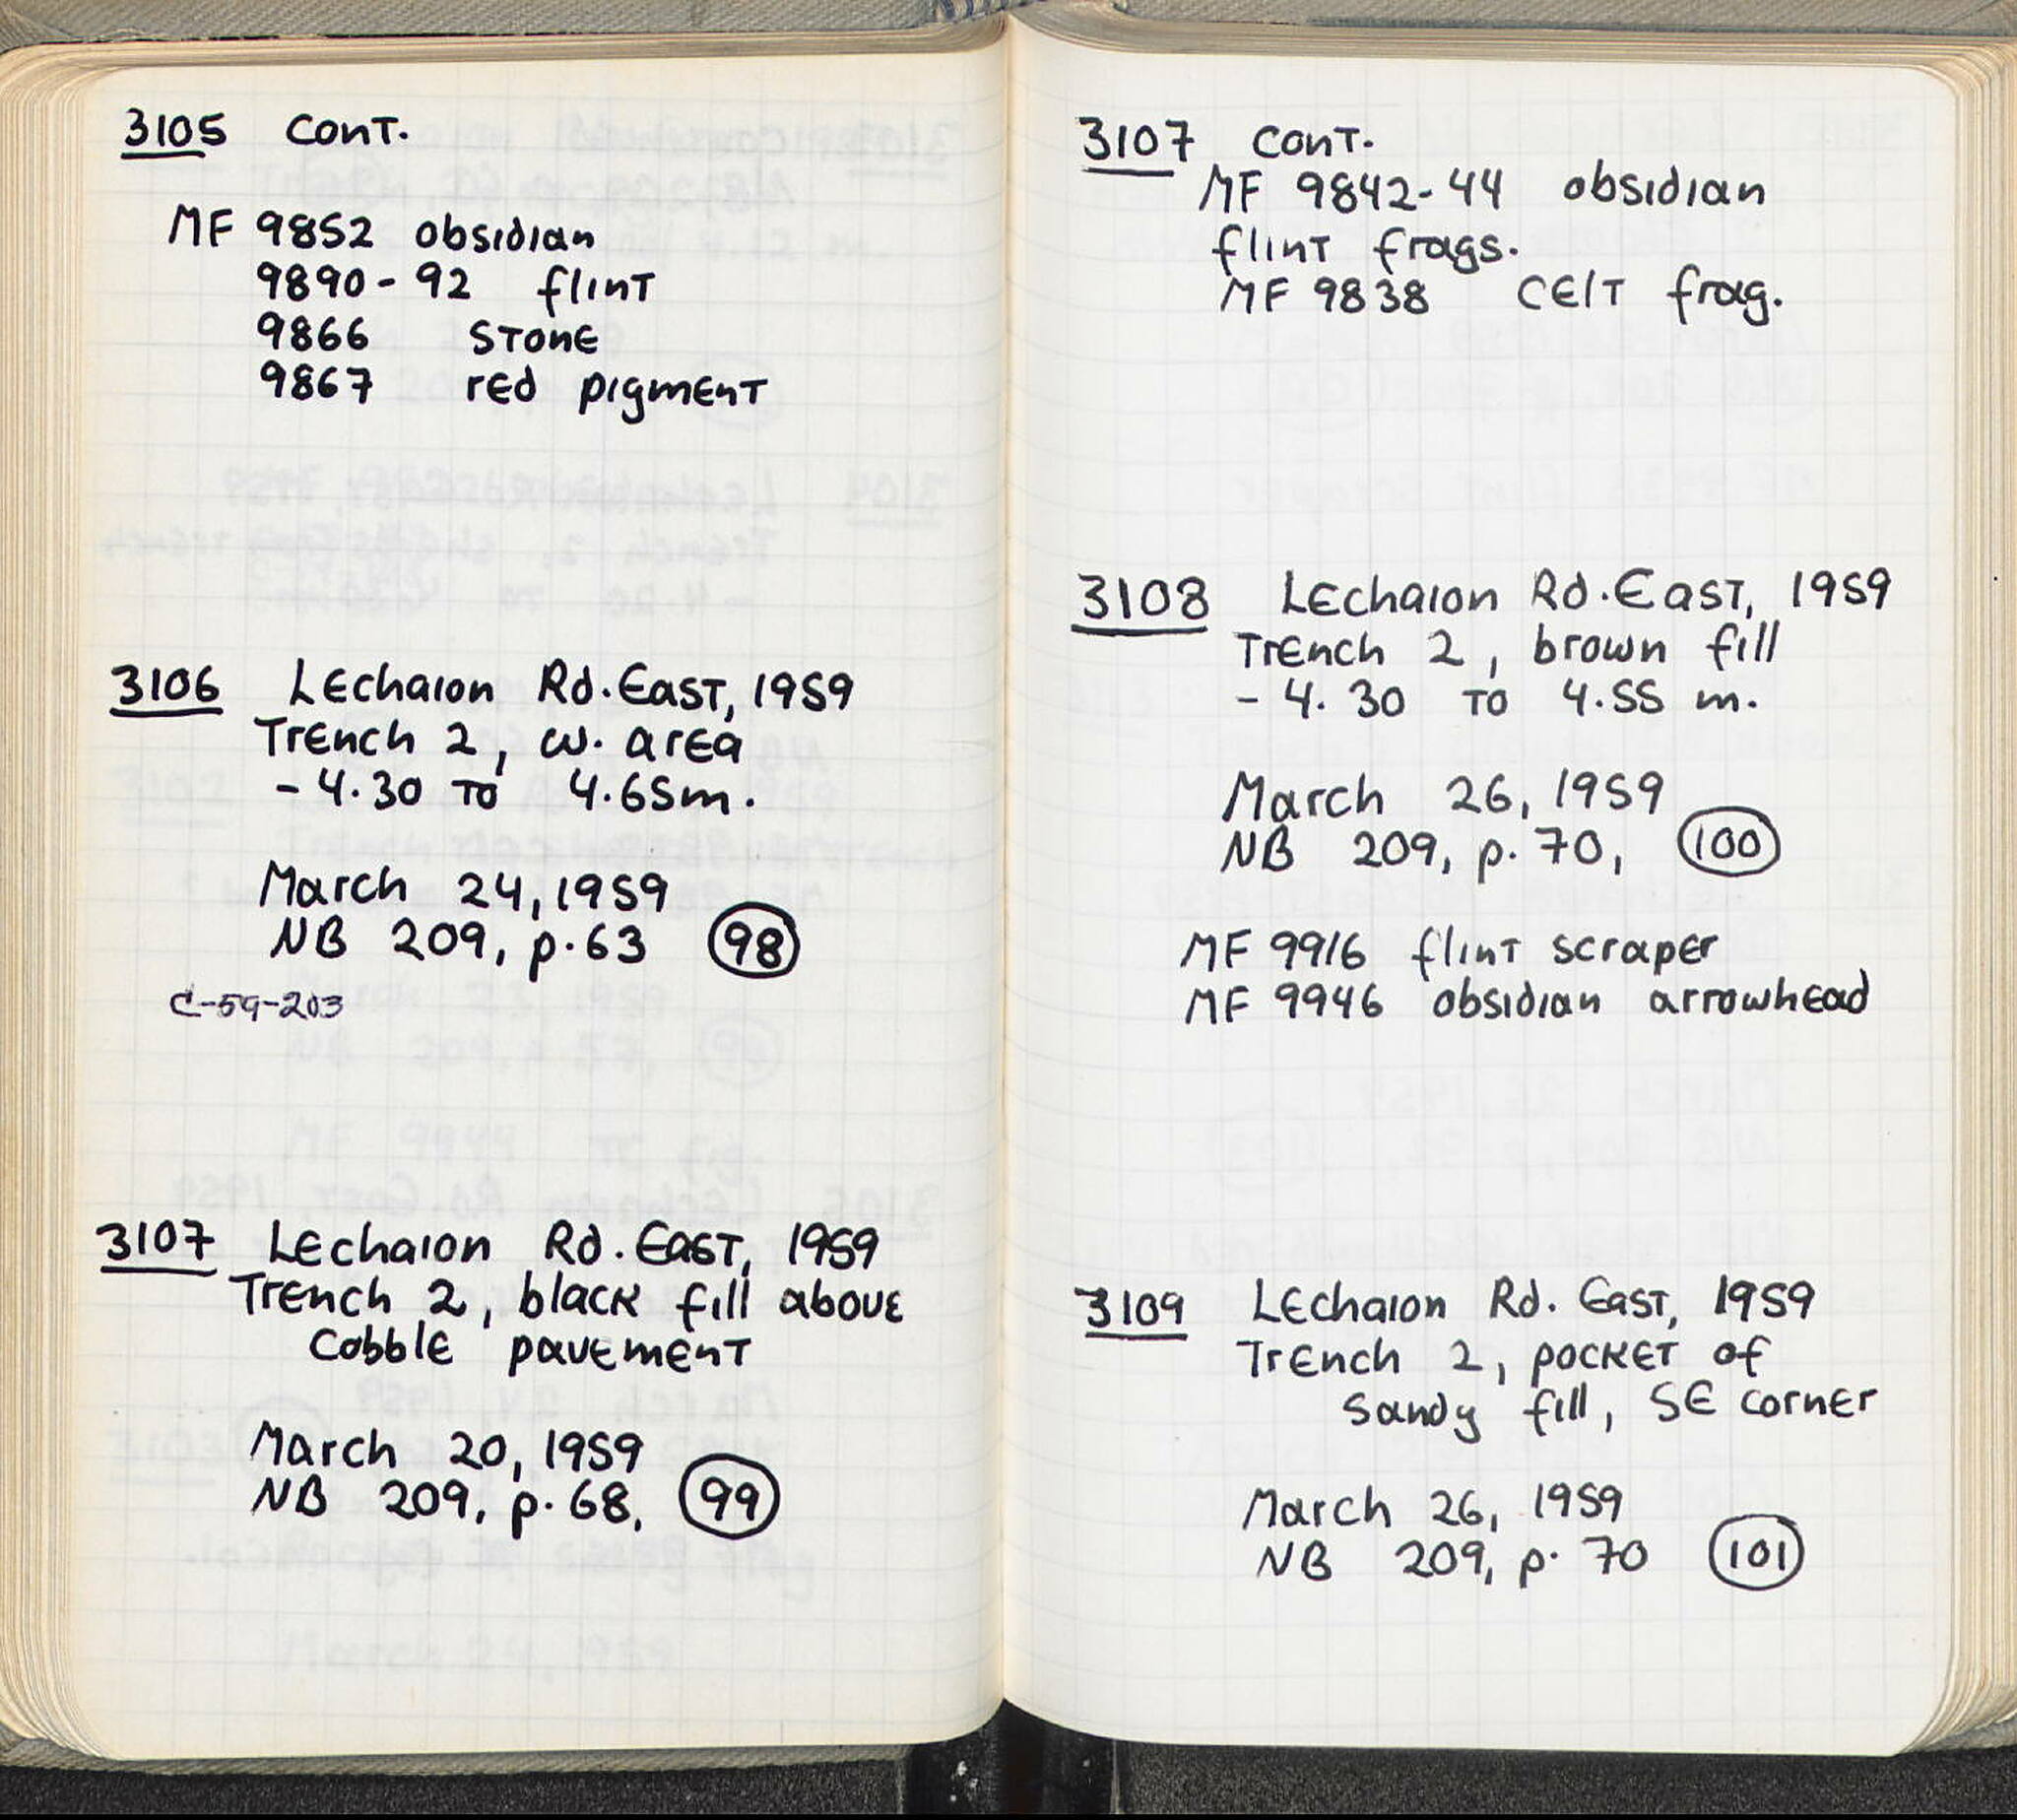 3105 cont.
MF 9852 obsidian
9890-92 flint
9866 stone
9867 red pigment
3106 Lechaion Rd. East, 1959
Trench 2, w. area
- 4.30 to 4.65m.
March 24, 1959
NB 209, p. 63 98
C-59-203
3107 Lechaion Rd. East, 1959
Trench 2, black fill above
cobble pavement
March 20, 1959
NB 209, p. 68, 99
3107 cont.
MF 9842-44 obsidian
flint frags.
MF 9838 celt frag.
3108 Lechaion Rd. East, 1959
Trench 2, brown fill
- 4.30 to 4.55 m.
March 26, 1959
NB 209, p. 70, 100
MF 9916 flint scraper
MF 9946 obsidian arrowhead
3109 Lechaion Rd. East, 1959
Trench 2, pocket of
sandy fill, SE corner
March 26, 1959
NB 209, p. 70 101